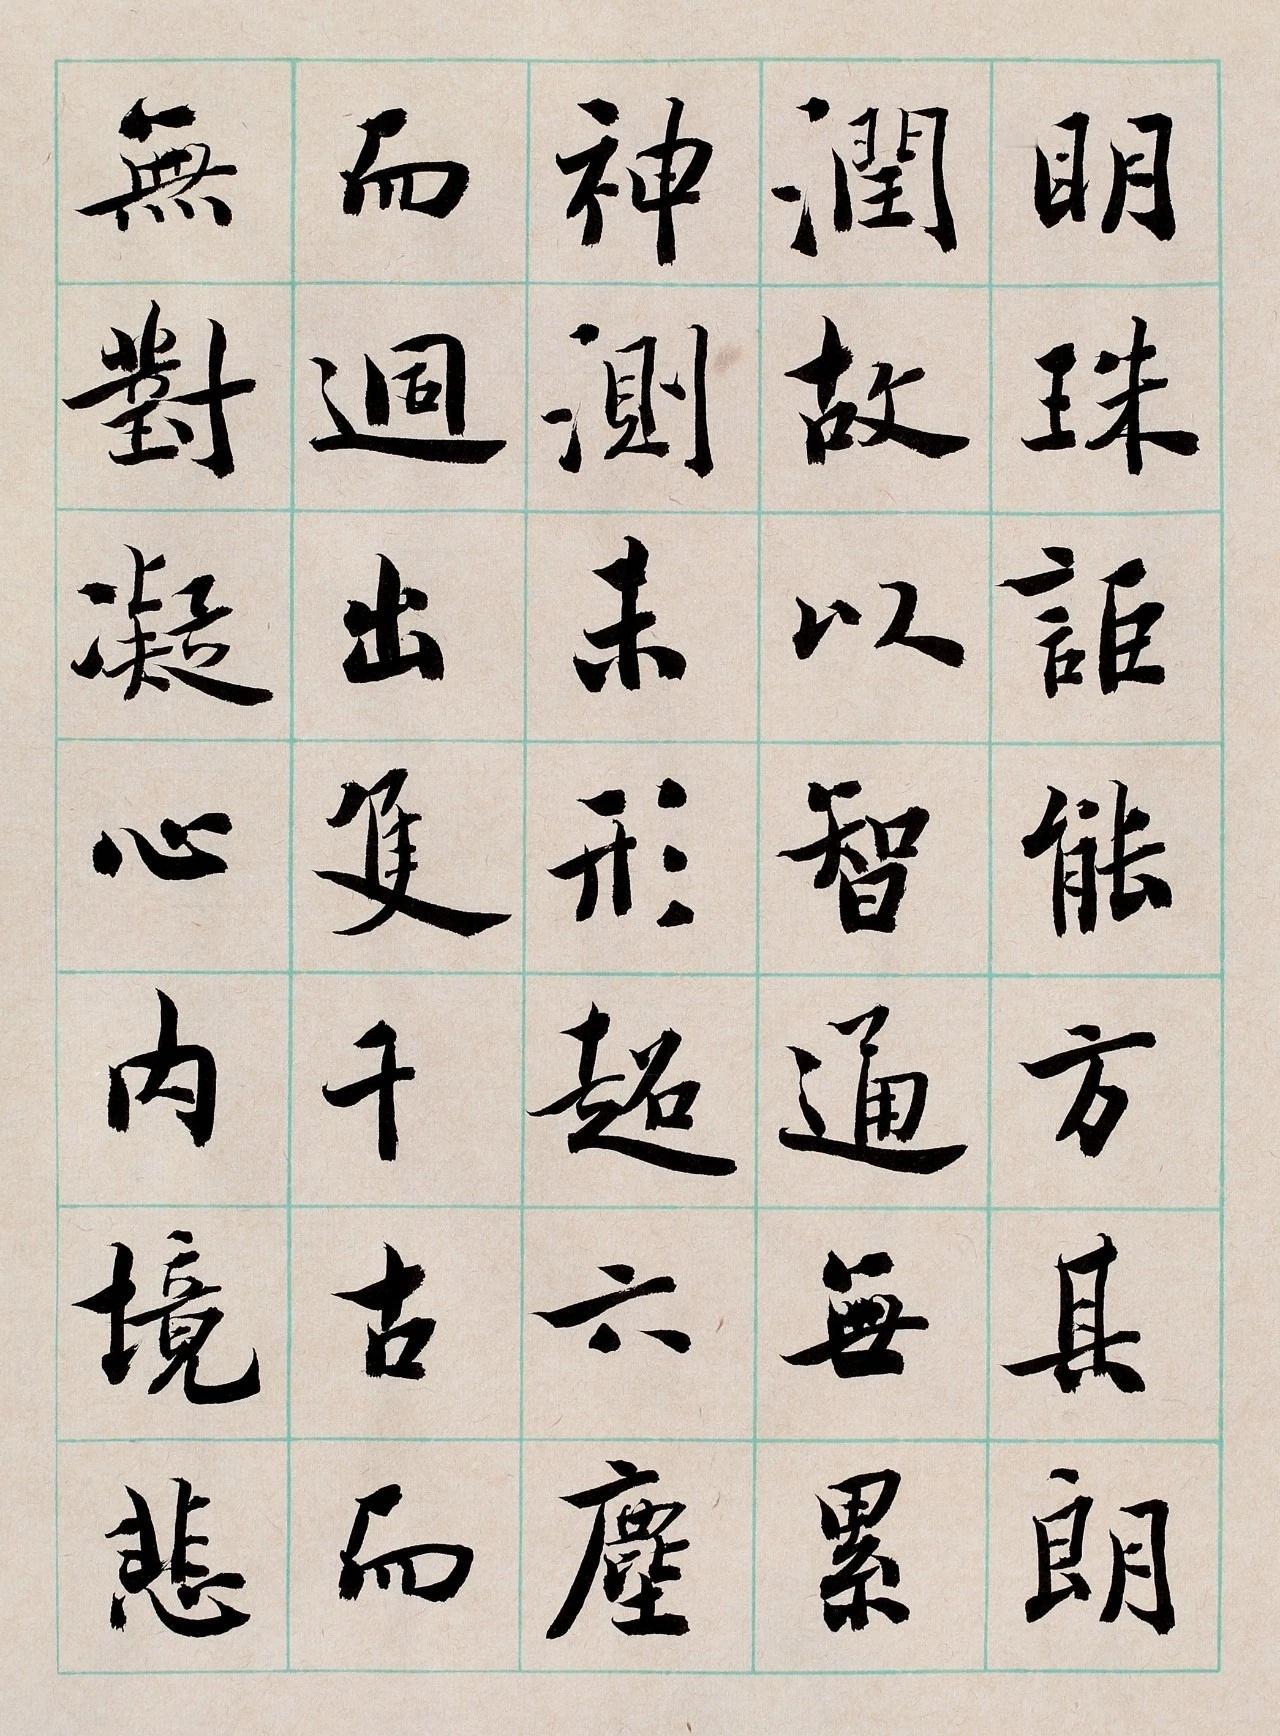 明珠詎能方其朗
潤故以智通無累
神測未形超六塵
而迥出隻千古而
無對凝心內境悲